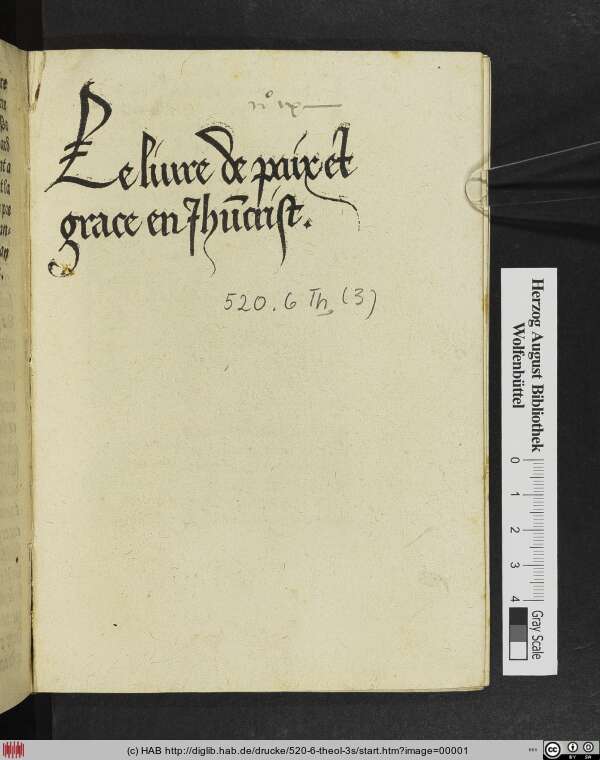 n° ix
Le liure de paix et
grace en Jhūcrist.
520. 6 Th (3)
Herzog August Bibliothek
Wolfenbüttel
0 1 2 3 4
Gray Scale
(c) HAB http://diglib.hab.de/drucke/520-6-theol-3s/start.htm?image=00001
cc BY SA